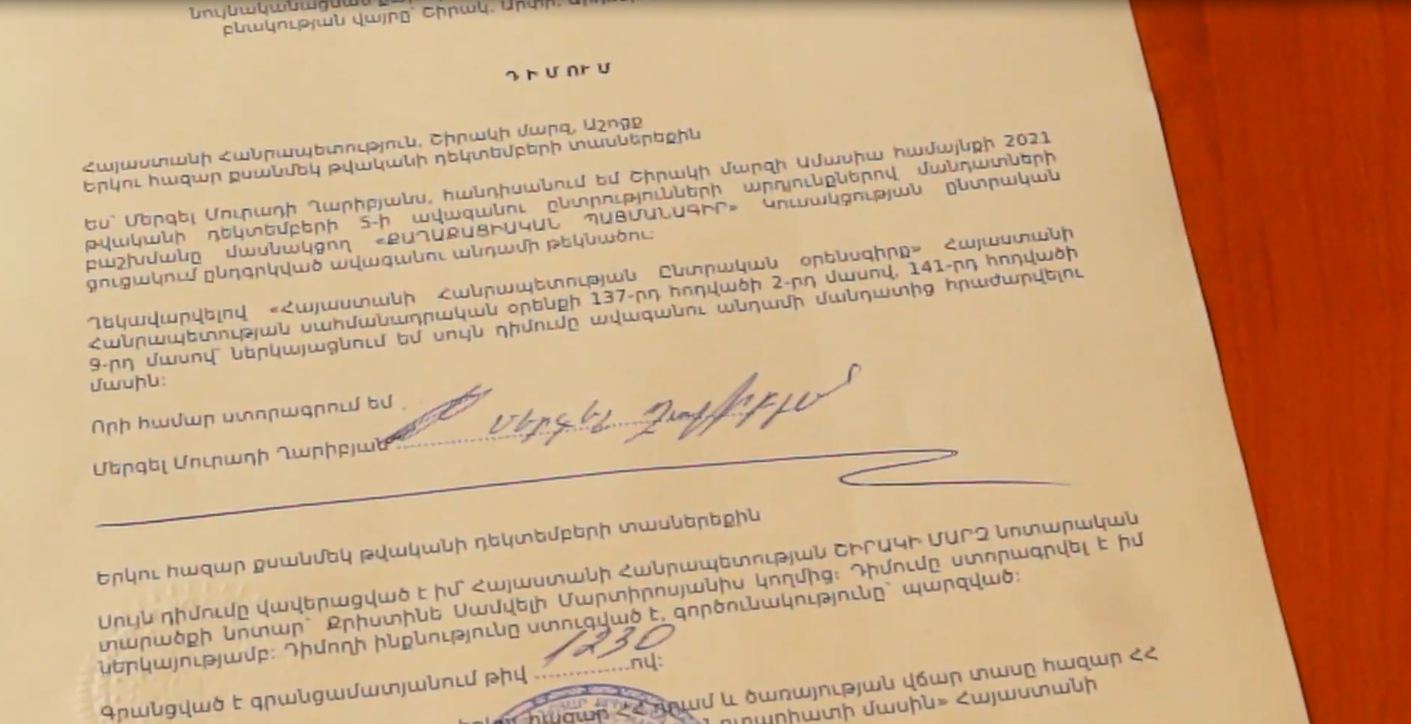 Նույնականացման
բնակության վայրը՝ Շիրակ, Արփի,
Դ Ի Մ ՈՒ Մ
Հայաստանի Հանրապետություն, Շիրակի մարզ, Աշոցք
Երկու հազար քսանմեկ թվականի դեկտեմբերի տասներեքին
Ես՝ Մերգել Մուրադի Ղարիբյանս, հանդիսանում եմ Շիրակի մարզի Ամասիա համայնքի 2021
թվականի դեկտեմբերի 5-ի ավագանու ընտրությունների արդյունքներով մանդատների
բաշխմանը մասնակցող «ՔԱՂԱՔԱՑԻԱԿԱՆ ՊԱՅՄԱՆԱԳԻՐ» կուսակցության ընտրական
ցուցակում ընդգրկված ավագանու անդամի թեկնածու:
Ղեկավարվելով «Հայաստանի Հանրապետության Ընտրական օրենսգիրք» Հայաստանի
Հանրապետության սահմանադրական օրենքի 137-րդ հոդվածի 2-րդ մասով, 141-րդ հոդվածի
9-րդ մասով՝ ներկայացնում եմ սույն դիմումը ավագանու անդամի մանդատից հրաժարվելու
մասին:
Որի համար ստորագրում եմ
Մերգել Մուրադի Ղարիբյան Մերգել Ղարիբյան
Երկու հազար քսանմեկ թվականի դեկտեմբերի տասներեքին
Սույն դիմումը վավերացված է իմ՝ Հայաստանի Հանրապետության ՇԻՐԱԿԻ ՄԱՐԶ նոտարական
տարածքի նոտար՝ Քրիստինե Սամվելի Մարտիրոսյանիս կողմից: Դիմումը ստորագրվել է իմ
ներկայությամբ: Դիմողի ինքնությունը ստուգված է, գործունակությունը՝ պարզված:
Գրանցված է գրանցամատյանում թիվ 1230 ով:
հազար ՀՀ դրամ և ծառայության վճար տասը հազար ՀՀ
մասին» Հայաստանի